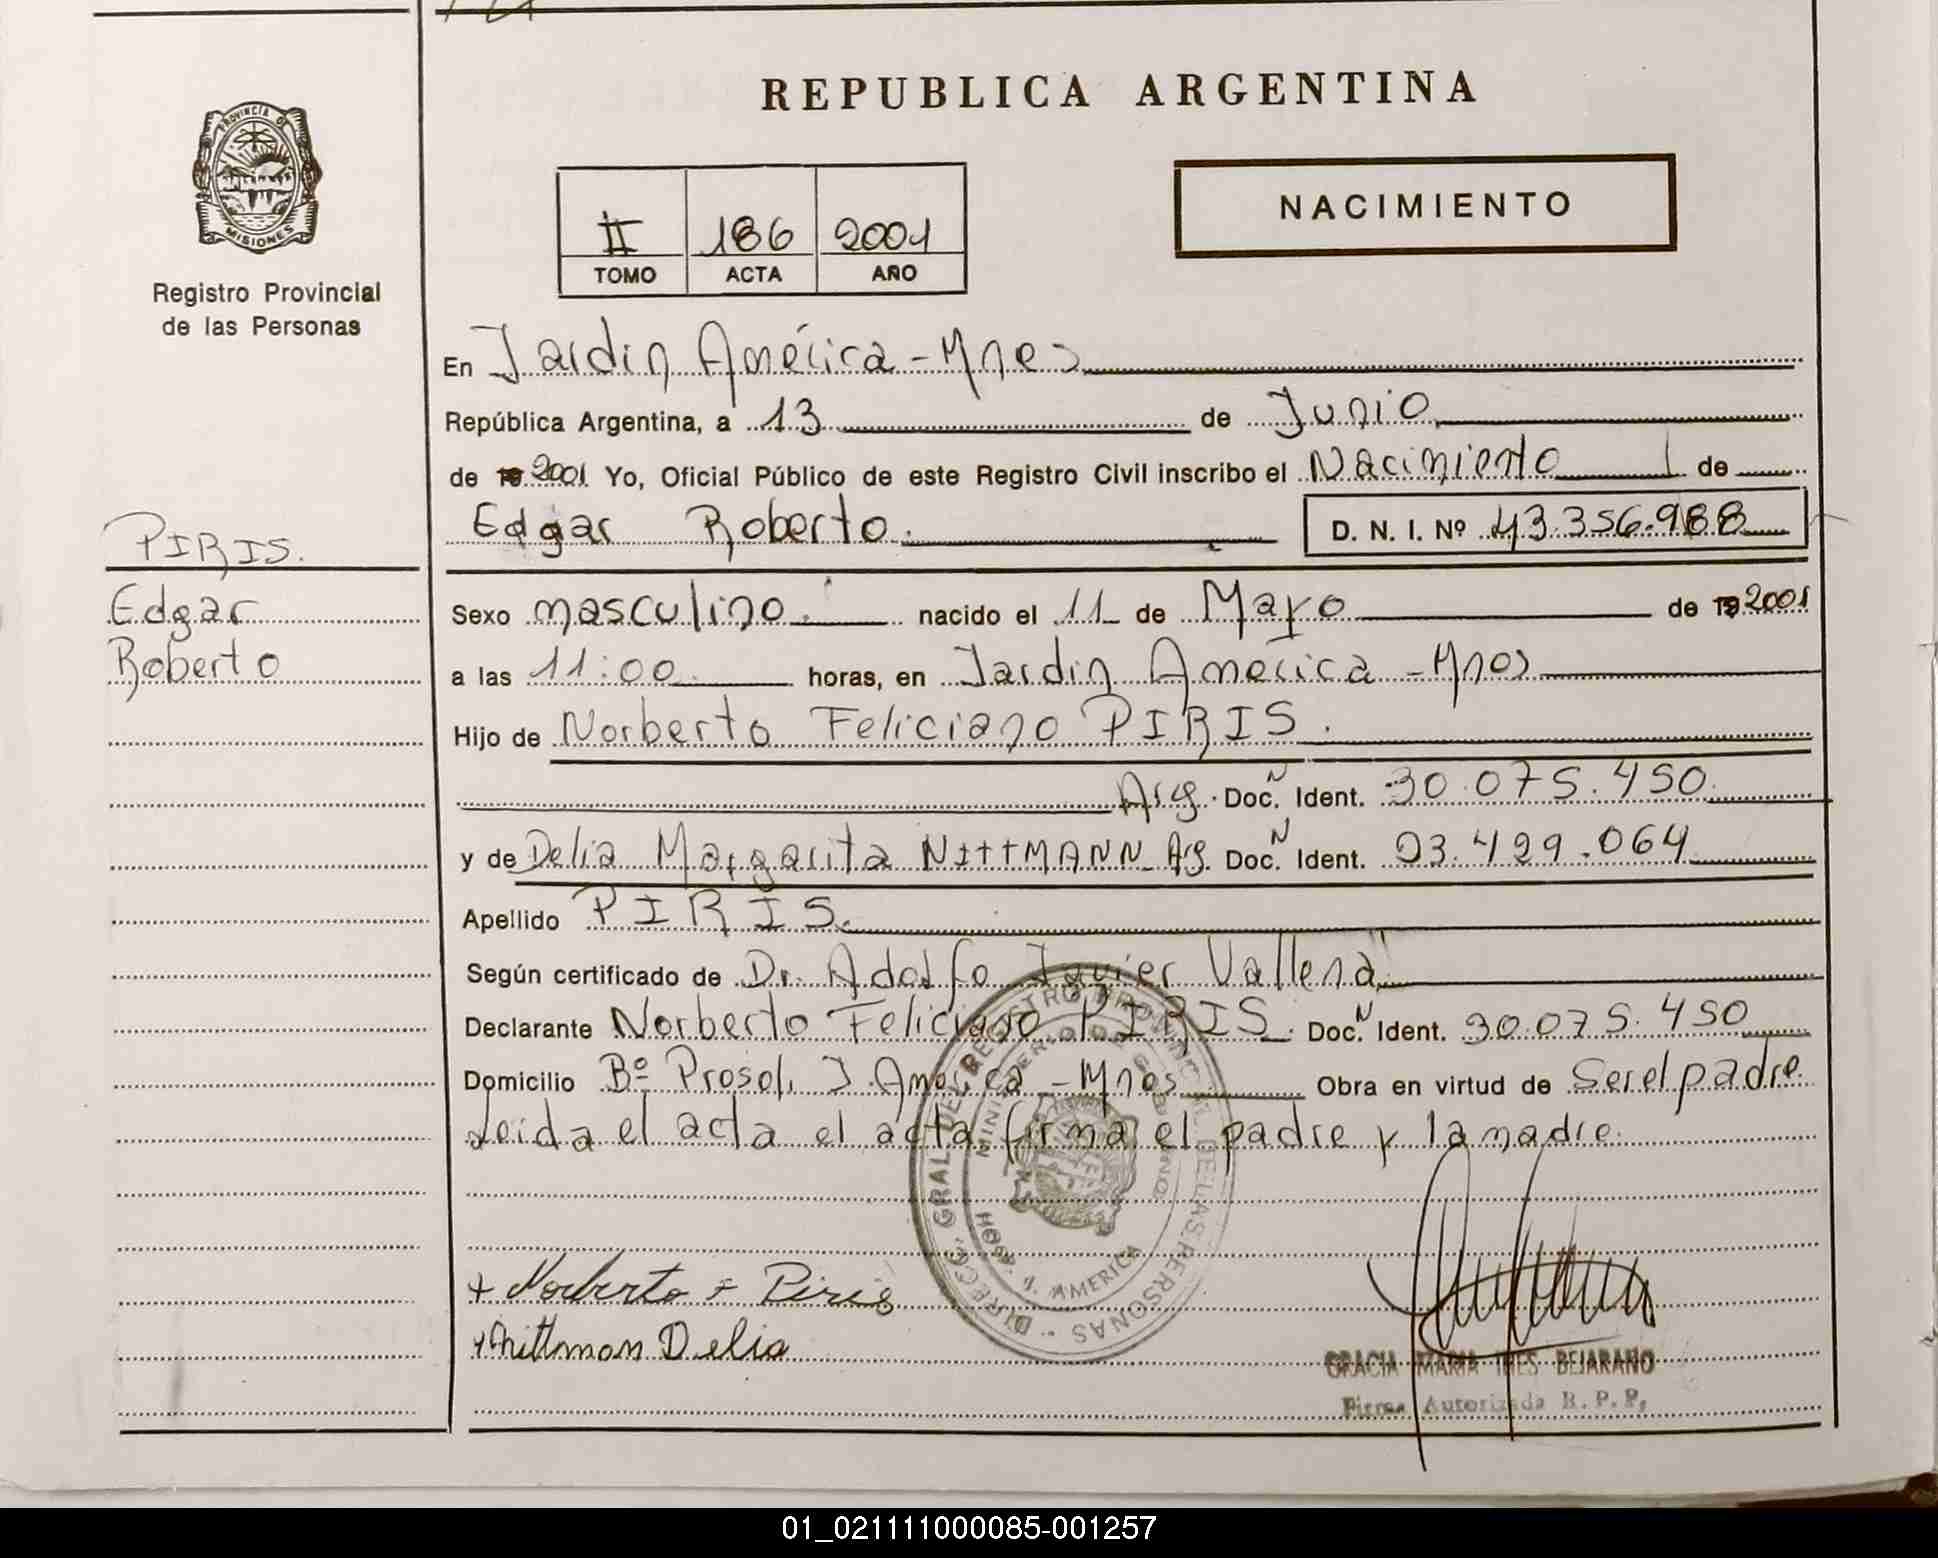 REPUBLICA ARGENTINA
PROVINCIA DE
MISIONES
Registro Provincial
de las Personas
NACIMIENTO
II 186 2001
TOMO ACTA AÑO
En Jardin América - Mnes
República Argentina, a 13 de Junio
de 2001 Yo, Oficial Público de este Registro Civil inscribo el Nacimiento de
Edgar Roberto. D. N. I. Nº 43.356.988
PIRIS.
Edgar
Roberto
Sexo masculino. nacido el 11 de Mayo de 2001
a las 11:00 horas, en Jardin América - Mnes
Hijo de Norberto Feliciano PIRIS.
Arg. Doc. N Ident. 30.075.450
y de Delia Margarita NITTMANN Arg. Doc. N Ident. 93.429.064
Apellido PIRIS.
Según certificado de Dr. Adolfo Javier
Declarante Norberto Feliciano PIRIS. Doc. N Ident. 30.075.450
Domicilio Bº Prosol. J. América - Mnes Obra en virtud de Ser el padre
Leida el acta el acta firma el padre y la madre.
DIRECC. GRAL. DEL REGISTRO PROVINCIAL DE LAS PERSONAS
MINISTERIO DE GOBIERNO
AMERICA
+ Norberto F Piris
+ Nittmon Delia
GRACIA MARIA INES BEJARANO
Firma Autorizada R.P.P.
01_021111000085-001257